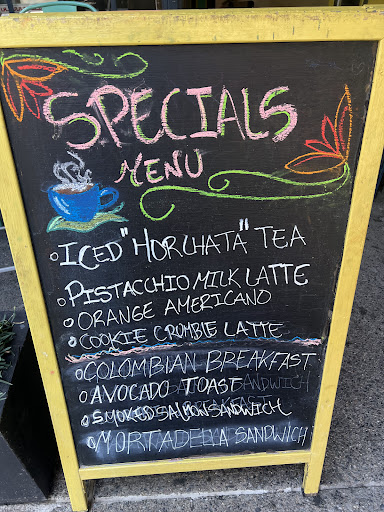 SPECIALS
MENU
ICED "HORCHATA" TEA
PISTACCHIO MILK LATTE
ORANGE AMERICANO
COOKIE CRUMBLE LATTE
COLOMBIAN BREAKFAST
AVOCADO TOAST SANDWICH
SMOKED SALMON SANDWICH
MORTADELLA SANDWICH